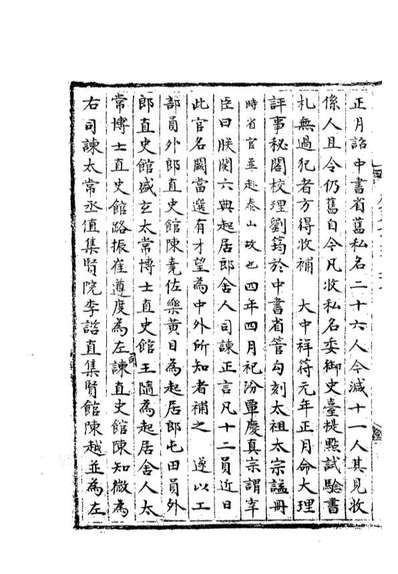 正月詔中書省舊私名二十六人令減十一人其見收
係人且令仍舊自今凡收私名委御史臺提點試驗書
札無過犯者方得收補　大中祥符元年正月命大理
評事秘閣校理劉筠於中書省管勾刻太祖太宗諡冊
時省官並赴泰山故也四年四月祀汾覃慶真宗謂宰
臣曰朕閱六典起居郎舍人司諫正言凡十二員近日
此官名闕當選有才望為中外所知者補之　遂以工
部員外郎直史館陳堯佐樂黃目為起居郎屯田員外
郎直史館盛玄太常博士直史館王隨為起居舍人太
常博士直史館路振崔遵度為左司諫直史館陳知微為
右司諫太常丞值集賢院李諮直集賢館陳越並為左